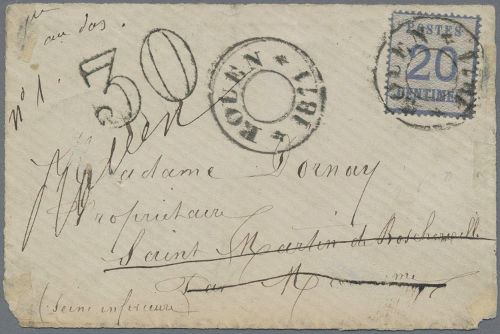 au dos.
n° 1.
30
ROUEN * 1871 *
ROUEN * 1871 *
POSTES
20
CENTIMES
Rouen
Madame Dornay
Propriétaire
Saint Martin de Boscherville
Par
(Seine inférieure)